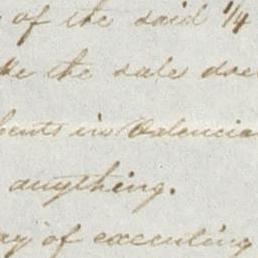 of the said 1/4
the sales
in Valencia
anything.
of executing